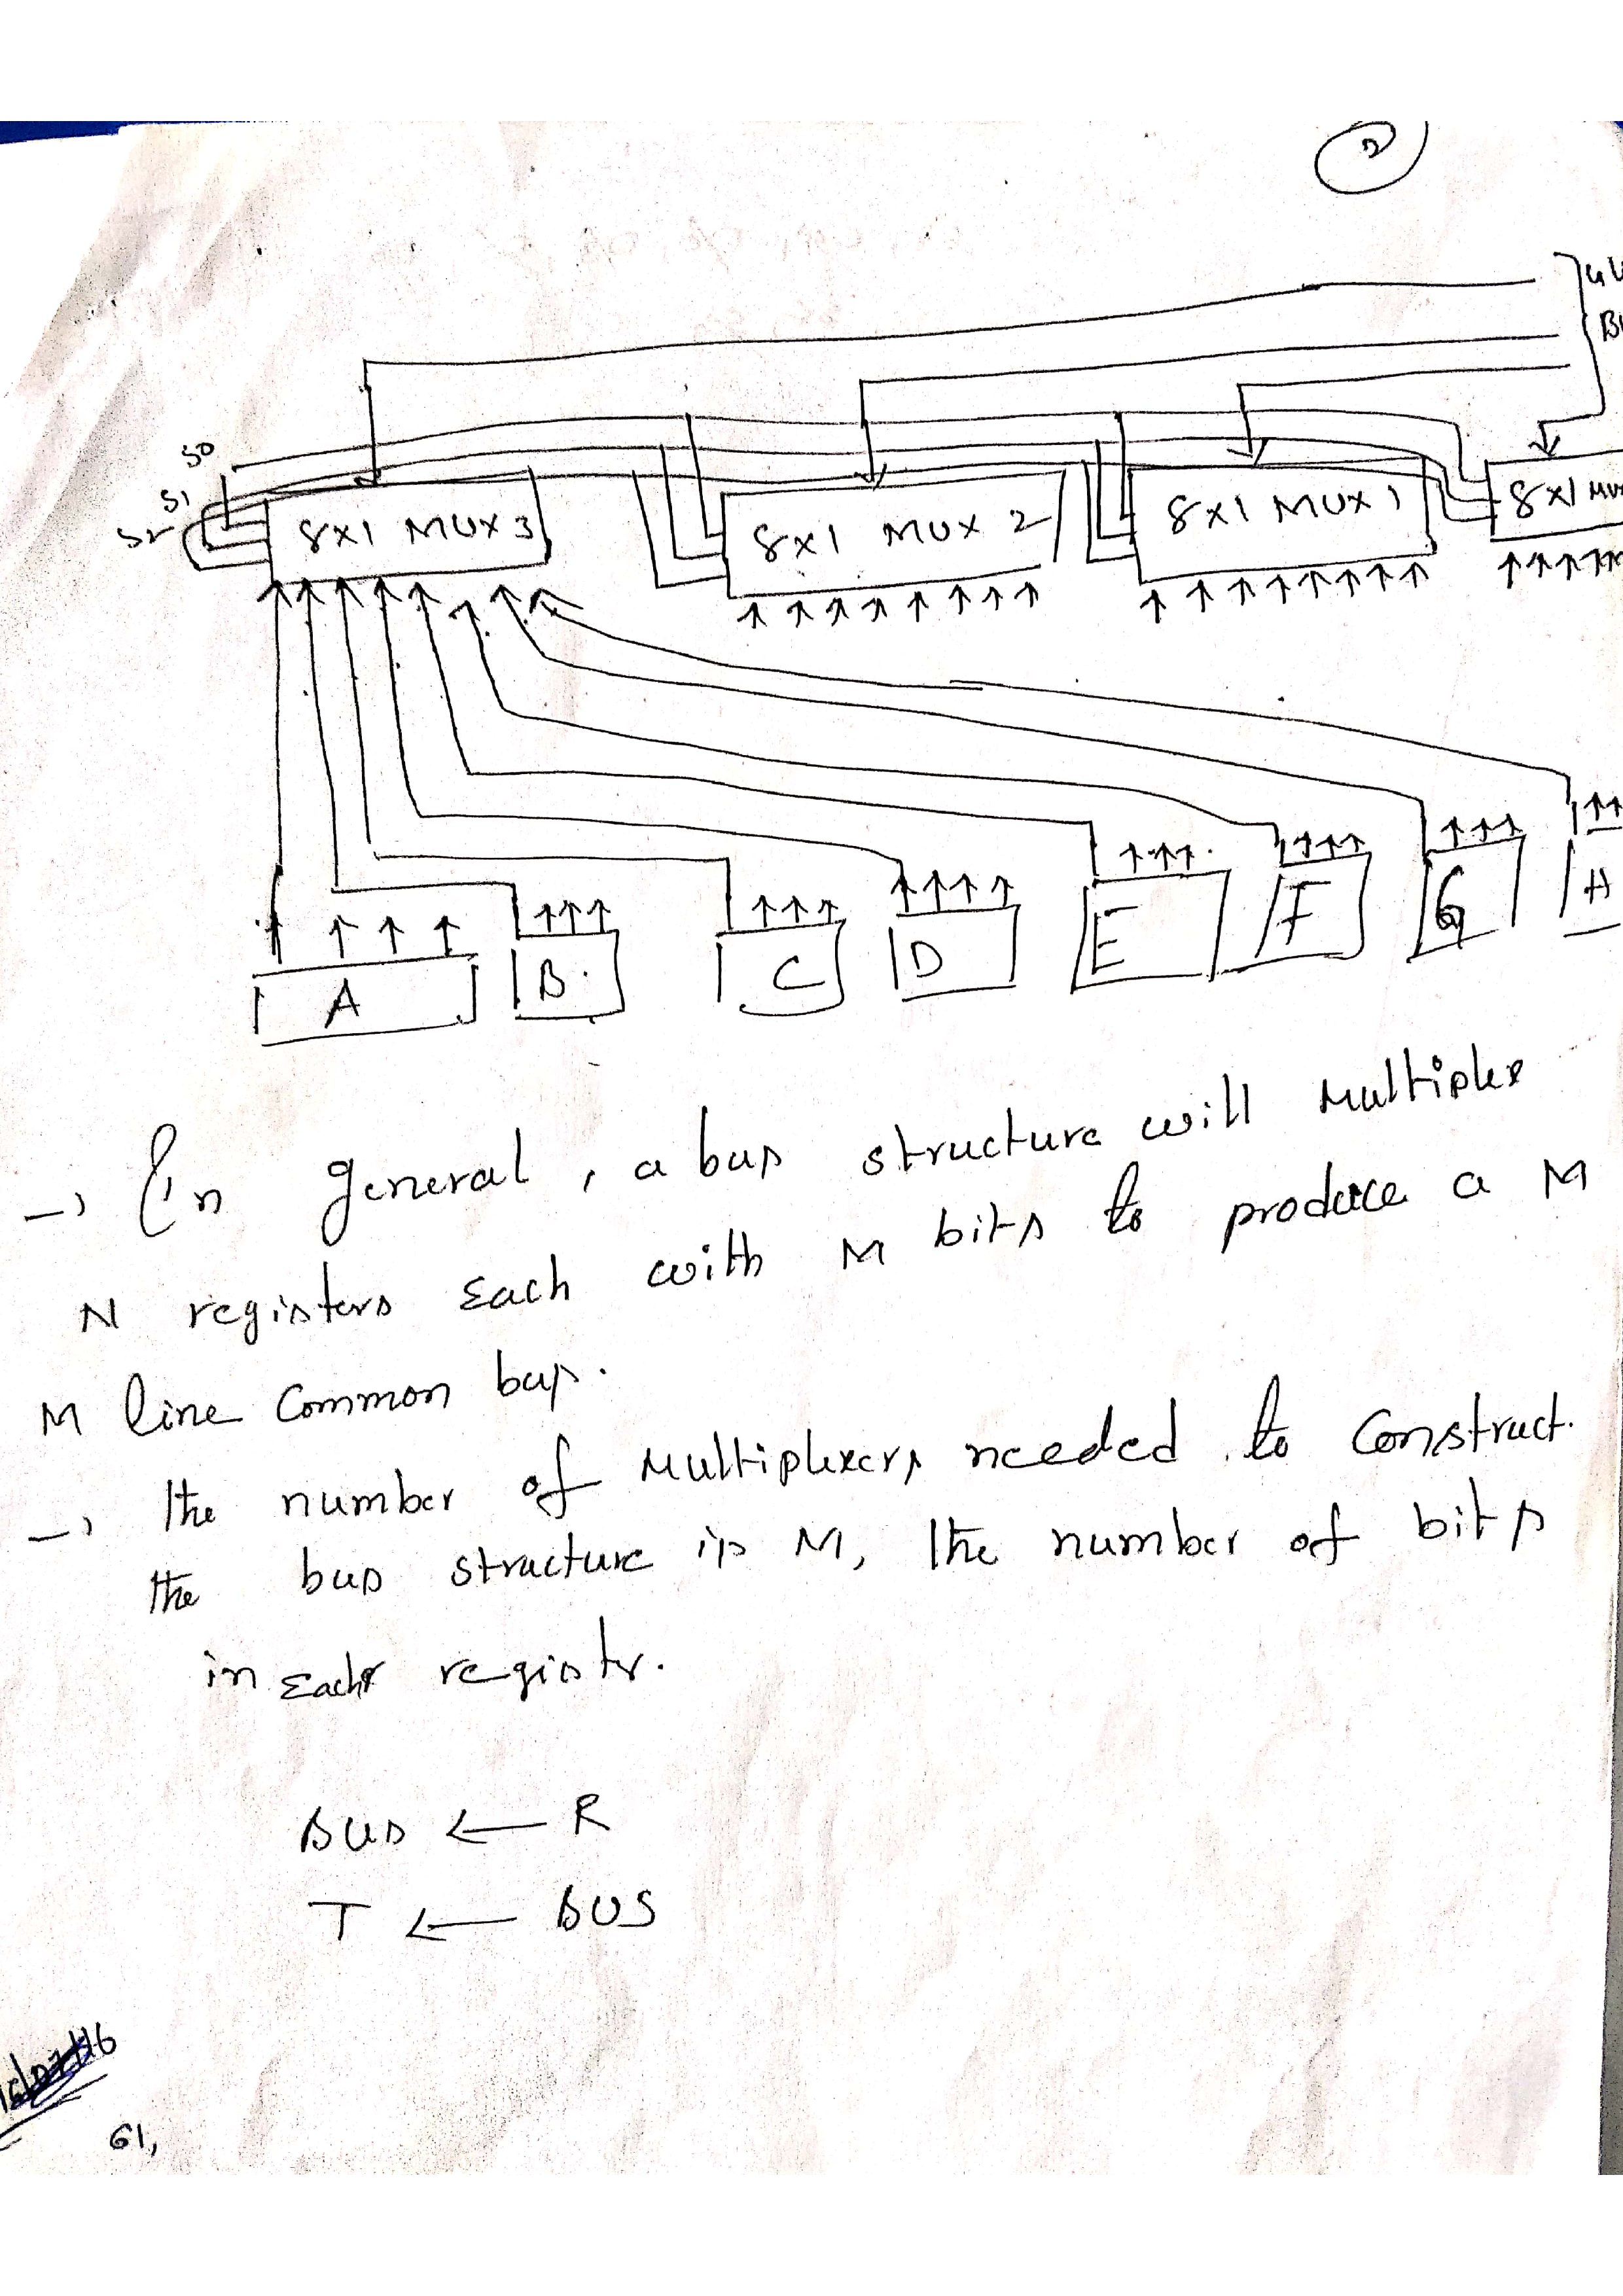 2
S0
S1
S2
8x1 MUX 3
8x1 MUX 2
8x1 MUX 1
8x1 MUX
A
B
C
D
E
F
G
H
→ In general, a bus structure will Multiplex
N registers Each with M bits to produce a M
M line Common bus.
→ the number of Multiplexers needed to Construct.
the bus structure is M, the number of bits
in Each registr.
BUS ← R
T ← BUS
61,